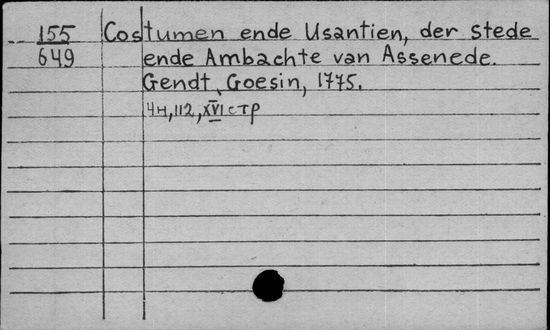 155 Costumen ende Usantien, der stede
649 ende Ambachte van Assenede.
Gendt, Goesin, 1775.
4н, 112, XVI стр